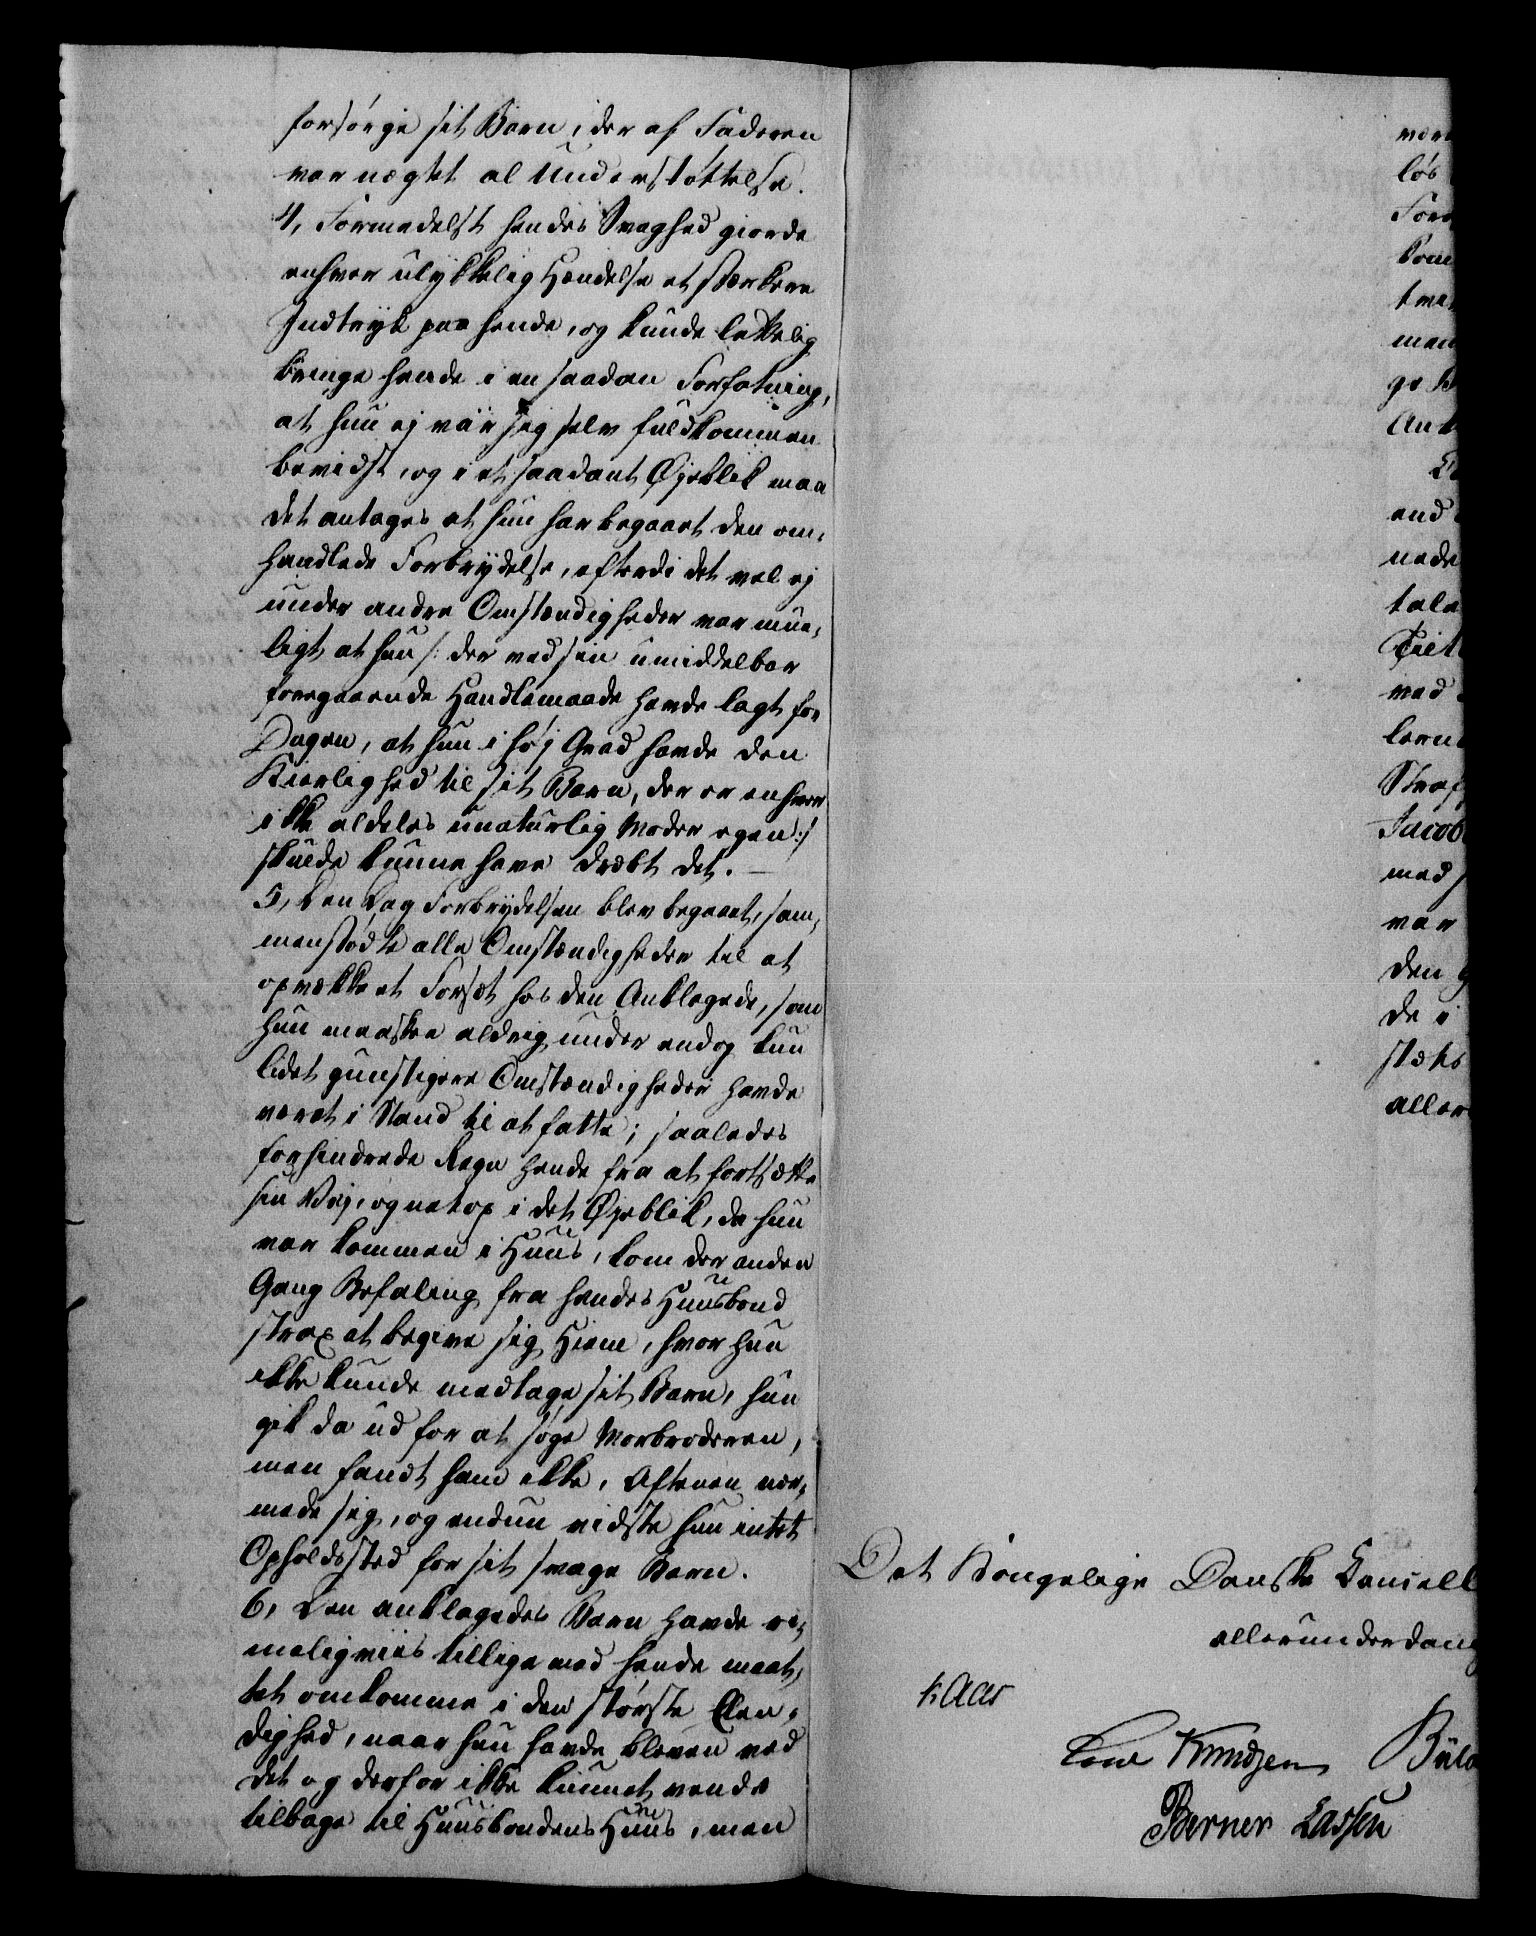 forsörge sit Barn, der af Faderen
var nægtet al Understöttelse.
4, Formedelst hendes Svaghed giorde
enhver ulykkelig Hændelse et stærkere
Indtryk paa hende, og kunde lettelig
bringe hende i en saadan Forfatning,
at hun ej var sig selv fuldkommen
bevidst, og i et saadant Øjeblik maa
det antages at hun har begaaet den om,
handlede Forbrydelse, efterdi det vel ej
under andre Omstændigheder var mue,
ligt at hun /: der ved sin umiddelbar
foregaaende Handlemaade havde lagt for
Dagen, at hun i höj Grad havde den
Kierlighed til sit Barn, der er enhver
ikke aldeles unaturlig Moder egen :/
skulde kunne have dræbt det. —
5, Den Dag Forbrydelsen blev begaaet, sam,
menstödte alle Omstændigheder til at
opvække et Forsæt hos den Anklagede, som
hun maaskee aldrig under endog kun
lidet gunstigere Omstændigheder havde
været i Stand til at fatte; saaledes
forhindrede Regn hende fra at fortsætte
sin Vej, og netop i det Øjeblik, da hun
var kommen i Huus, kom der anden
Gang Befaling fra hendes Huusbond
strax at begive sig Hiem, hvor hun
ikke kunde medtage sit Barn, hun
gik da ud for at söge Morbroderen,
men fandt ham ikke, Aftenen nær,
mede sig, og endnu vidste hun intet
Opholdssted for sit svage Barn.
6, Den anklagedes Barn havde ri,
meligviis tillige med hende maat,
tet omkomme i den störste Elen,
dighed, naar hun havde bleven ved
det og derfor ikke kunnet vende
tilbage til Huusbondens Huus, men
lös
men
end
nede
tale
ved
Jacob
med
var
den
de i
stæts
aller
Det Kongelige Danske Cancell
allerunderdan
Kaas
Knudsen Bülo
Berner Lassen